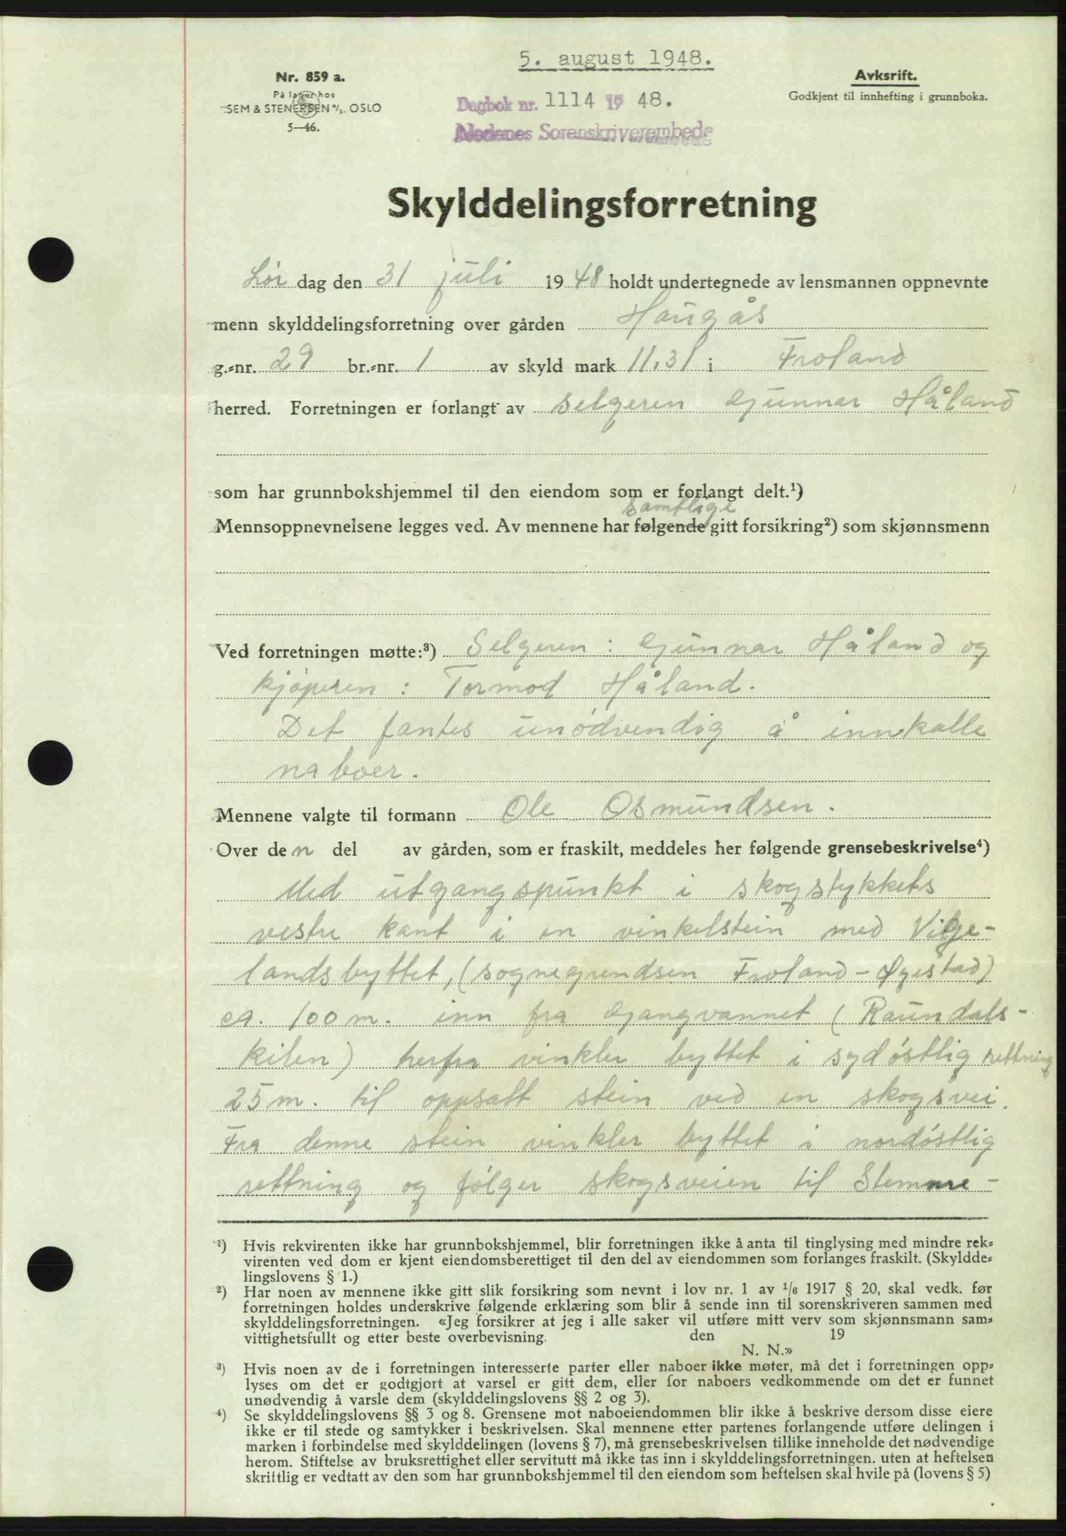 5. august 1948.
Nr. 859 a.
På lager hos
SEM & STENERSEN A/S. OSLO
5—46.
Dagbok nr. 1114 19 48.
Nedenes Sorenskriverembede
Avskrift.
Godkjent til innhefting i grunnboka.
Skylddelingsforretning
Lør dag den 31 juli 19 48 holdt undertegnede av lensmannen oppnevnte
menn skylddelingsforretning over gården Haugås
g.-nr. 29 br.-nr. 1 av skyld mark 11,31 i Froland
herred. Forretningen er forlangt av selgeren Gunnar Håland
som har grunnbokshjemmel til den eiendom som er forlangt delt.¹)
samtlige
Mennsoppnevnelsene legges ved. Av mennene har følgende gitt forsikring²) som skjønnsmenn
Ved forretningen møtte:³) Selgeren: Gunnar Håland og
kjøperen: Tormod Håland.
Det fantes unødvendig å innkalle
naboer.
Mennene valgte til formann Ole Osmundsen.
Over den del av gården, som er fraskilt, meddeles her følgende grensebeskrivelse⁴)
Med utgangspunkt i skogstykkets
vestre kant i en vinkelstein med Vilge-
landsbyttet, (sognegrendsen Froland-Øyestad)
ca. 100 m. inn fra Gjangvannet (Raundals-
kilen) herfra vinkler byttet i sydøstlig rettning
25 m. til oppsatt stein ved en skogsvei.
Fra denne stein vinkler byttet i nordøstlig
rettning og følger skogsveien til Stemme-
¹) Hvis rekvirenten ikke har grunnbokshjemmel, blir forretningen ikke å anta til tinglysing med mindre rek-
virenten ved dom er kjent eiendomsberettiget til den del av eiendommen som forlanges fraskilt. (Skyldde-
lingslovens § 1.)
²) Har noen av mennene ikke gitt slik forsikring som nevnt i lov nr. 1 av 1/6 1917 § 20, skal vedk. før
forretningen holdes underskrive følgende erklæring som blir å sende inn til sorenskriveren sammen med
skylddelingsforretningen. «Jeg forsikrer at jeg i alle saker vil utføre mitt verv som skjønnsmann sam-
vittighetsfullt og etter beste overbevisning. den 19
N. N.»
³) Hvis noen av de i forretningen interesserte parter eller naboer ikke møter, må det i forretningen opp-
lyses om det er godtgjort at varsel er gitt dem, eller for naboers vedkommende om det er funnet
unødvendig å varsle dem (skylddelingslovens §§ 2 og 3).
⁴) Se skylddelingslovens §§ 3 og 8. Grensene mot naboeiendommen blir ikke å beskrive dersom disse eiere
ikke er til stede og samtykker i beskrivelsen. Skal mennene etter partenes forlangende utføre delingen i
marken i forbindelse med skylddelingen (lovens § 7), må grensebeskrivelsen tillike inneholde det nødvendige
herom. Stiftelse av bruksrettighet eller servitutt må ikke tas inn i skylddelingsforretningen. uten at heftelsen
skriftlig er vedtatt av den som har grunnbokshjemmel til den eiendom som heftelsen skal hvile på (lovens § 5)